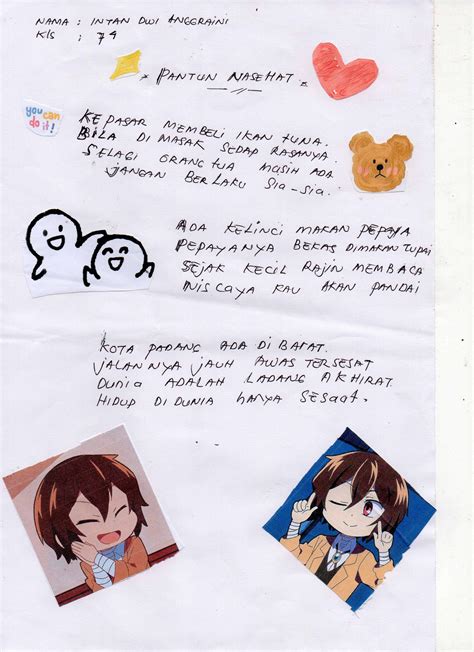 NAMA : INTAN DWI ANGGRAINI
Kls : 74
PANTUN NASEHAT
you can
do it!
KEPASAR MEMBELI IKAN TUNA.
BILA DI MASAK SEDAP RASANYA.
SELAGI ORANG TUA MUSIH ADA
JANGAN BERLAKU SIA-SIA.
ADA KELINCI MAKAN PEPAYA
PEPAYANYA BEKAS DIMAKAN TUPAI
SEJAK KECIL RAJIN MEMBACA
NISCAYA KAU AKAN PANDAI
KOTA PADANG ADA DI BARAT.
JALANNYA JAUH AWAS TERSESAT
DUNIA ADALAH LADANG AKHIRAT.
HIDUP DI DUNIA HANYA SESAAT.